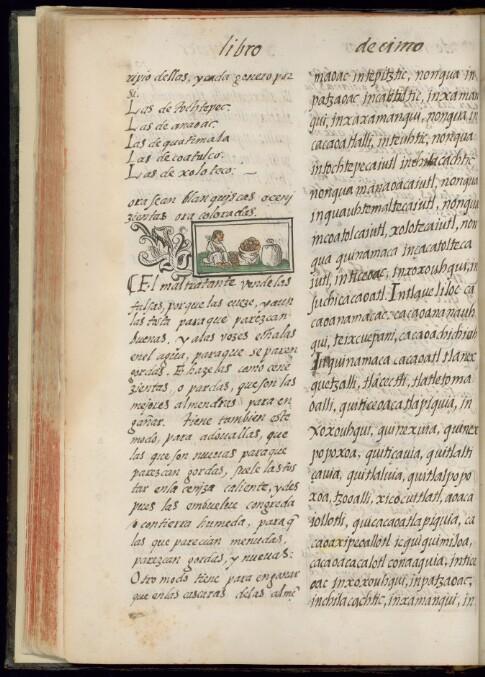 libro
decimo
ripio dellas, y cada genero por
si.
Las de tochtepec.
Las de anaoac.
Las de guatimala
Las de coatulco.
Las de xoloteco:
ora sean blanquiscas o ceni
zientas ora coloradas.
El maltratante vende las
falsas, porque las cueze, y aun
las tosta para que parezcan
buenas, y a las vozes echalas
en el agua, para que se paren
gordas. E hazelas como cene
zientas, o pardas, que son las
mejores almendras para en
gañar. tiene tambien este
modo, para adoballas, que
las que son nuevas para que
parezcan gordas, suele las tos
tar en la ceniza caliente, y des
pues las embuelve con greda
o con tierra humeda, para q̃
las que parecian menudas,
parezcan gordas, y nuevas:
Otro modo tiene para engañar
que en las cascaras de las almẽ
maoac intepitztic, nonqua in
patzaoac incacaltic, inxaman
qui, inxaxamanqui, nonqua in
cacaoatlalli, inteuhtic, nonqua
intochtepecaiutl inchilacachtic
nonqua manaoacaiutl, nonqua
inquauhtemaltecaiutl, nonqua
mcoatolcaiutl, xolotecaiutl, non
qua quinamaca incacatolteca
iutl, inticeoac, inxoxouhqui, in
suchicacaoatl. Intlaueliloc ca
caoanamacac, cacaoananauh
qui, teixcuepani, cacaoachichiuh
Inquinamaca cacaoatl tlanex
quetzalli, tlacectli, tlatletoma
oalli, quiticeoacatlapiquia, in
xoxouhqui, quinexuia, quinex
popoxoa, quiticauia, quitlalti
cauia, quitlaluia, quitlalpopo
xoa, tzooalli, xicocuitlatl, aoaca
iollotli, quicacaoatlapiquia, ca
caoaxipeoallotl ic quiquimiloa,
cacaoacacalotl conaaquia, intice
oac inxoxouhqui, inpatzaoac,
inchilacachtic, inxamanqui, in